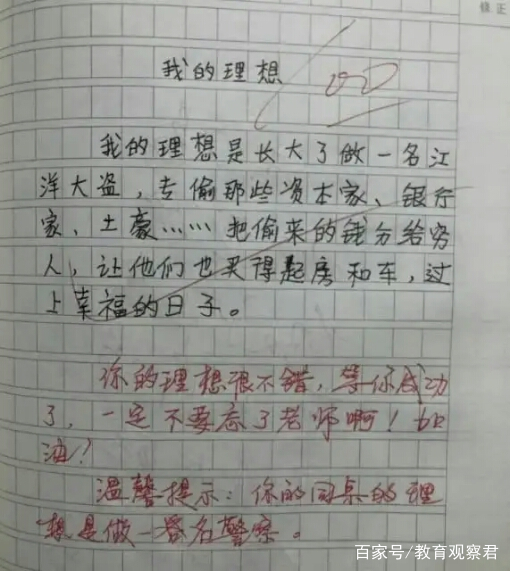 修正
我的理想
100
我的理想是长大了做一名江
洋大盗，专偷那些资本家、银行
家、土豪……把偷来的钱分给穷
人，让他们也买得起房和车，过
上幸福的日子。
你的理想很不错，等你成功
了，一定不要忘了老师啊！加
油！
温馨提示：你的同桌的理
想是做一番名警察。
百家号/教育观察君